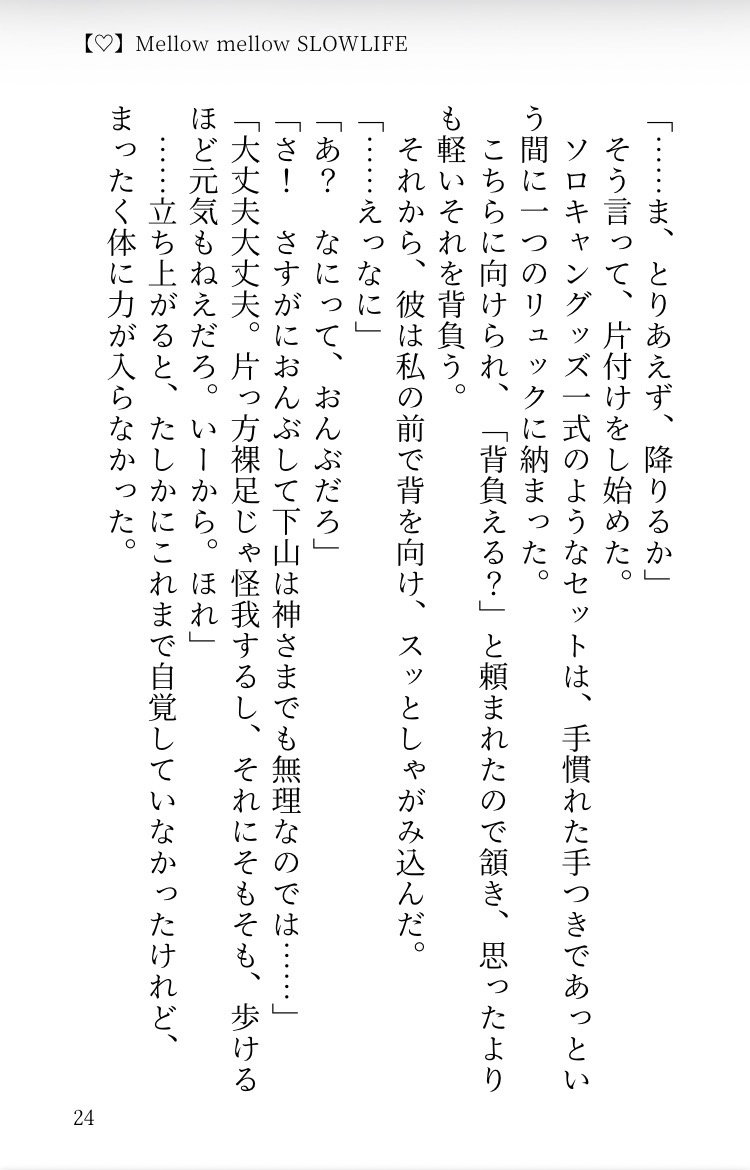 【♡】Mellow mellow SLOWLIFE
「……ま、とりあえず、降りるか」
そう言って、片付けをし始めた。
ソロキャングッズ一式のようなセットは、手慣れた手つきであっとい
う間に一つのリュックに納まった。
こちらに向けられ、「背負える？」と頼まれたので頷き、思ったより
も軽いそれを背負う。
それから、彼は私の前で背を向け、スッとしゃがみ込んだ。
「……えっなに」
「あ？　なにって、おんぶだろ」
「さ！　さすがにおんぶして下山は神さまでも無理なのでは……」
「大丈夫大丈夫。片っ方裸足じゃ怪我するし、それにそもそも、歩ける
ほど元気もねえだろ。いーから。ほれ」
……立ち上がると、たしかにこれまで自覚していなかったけれど、
まったく体に力が入らなかった。
24